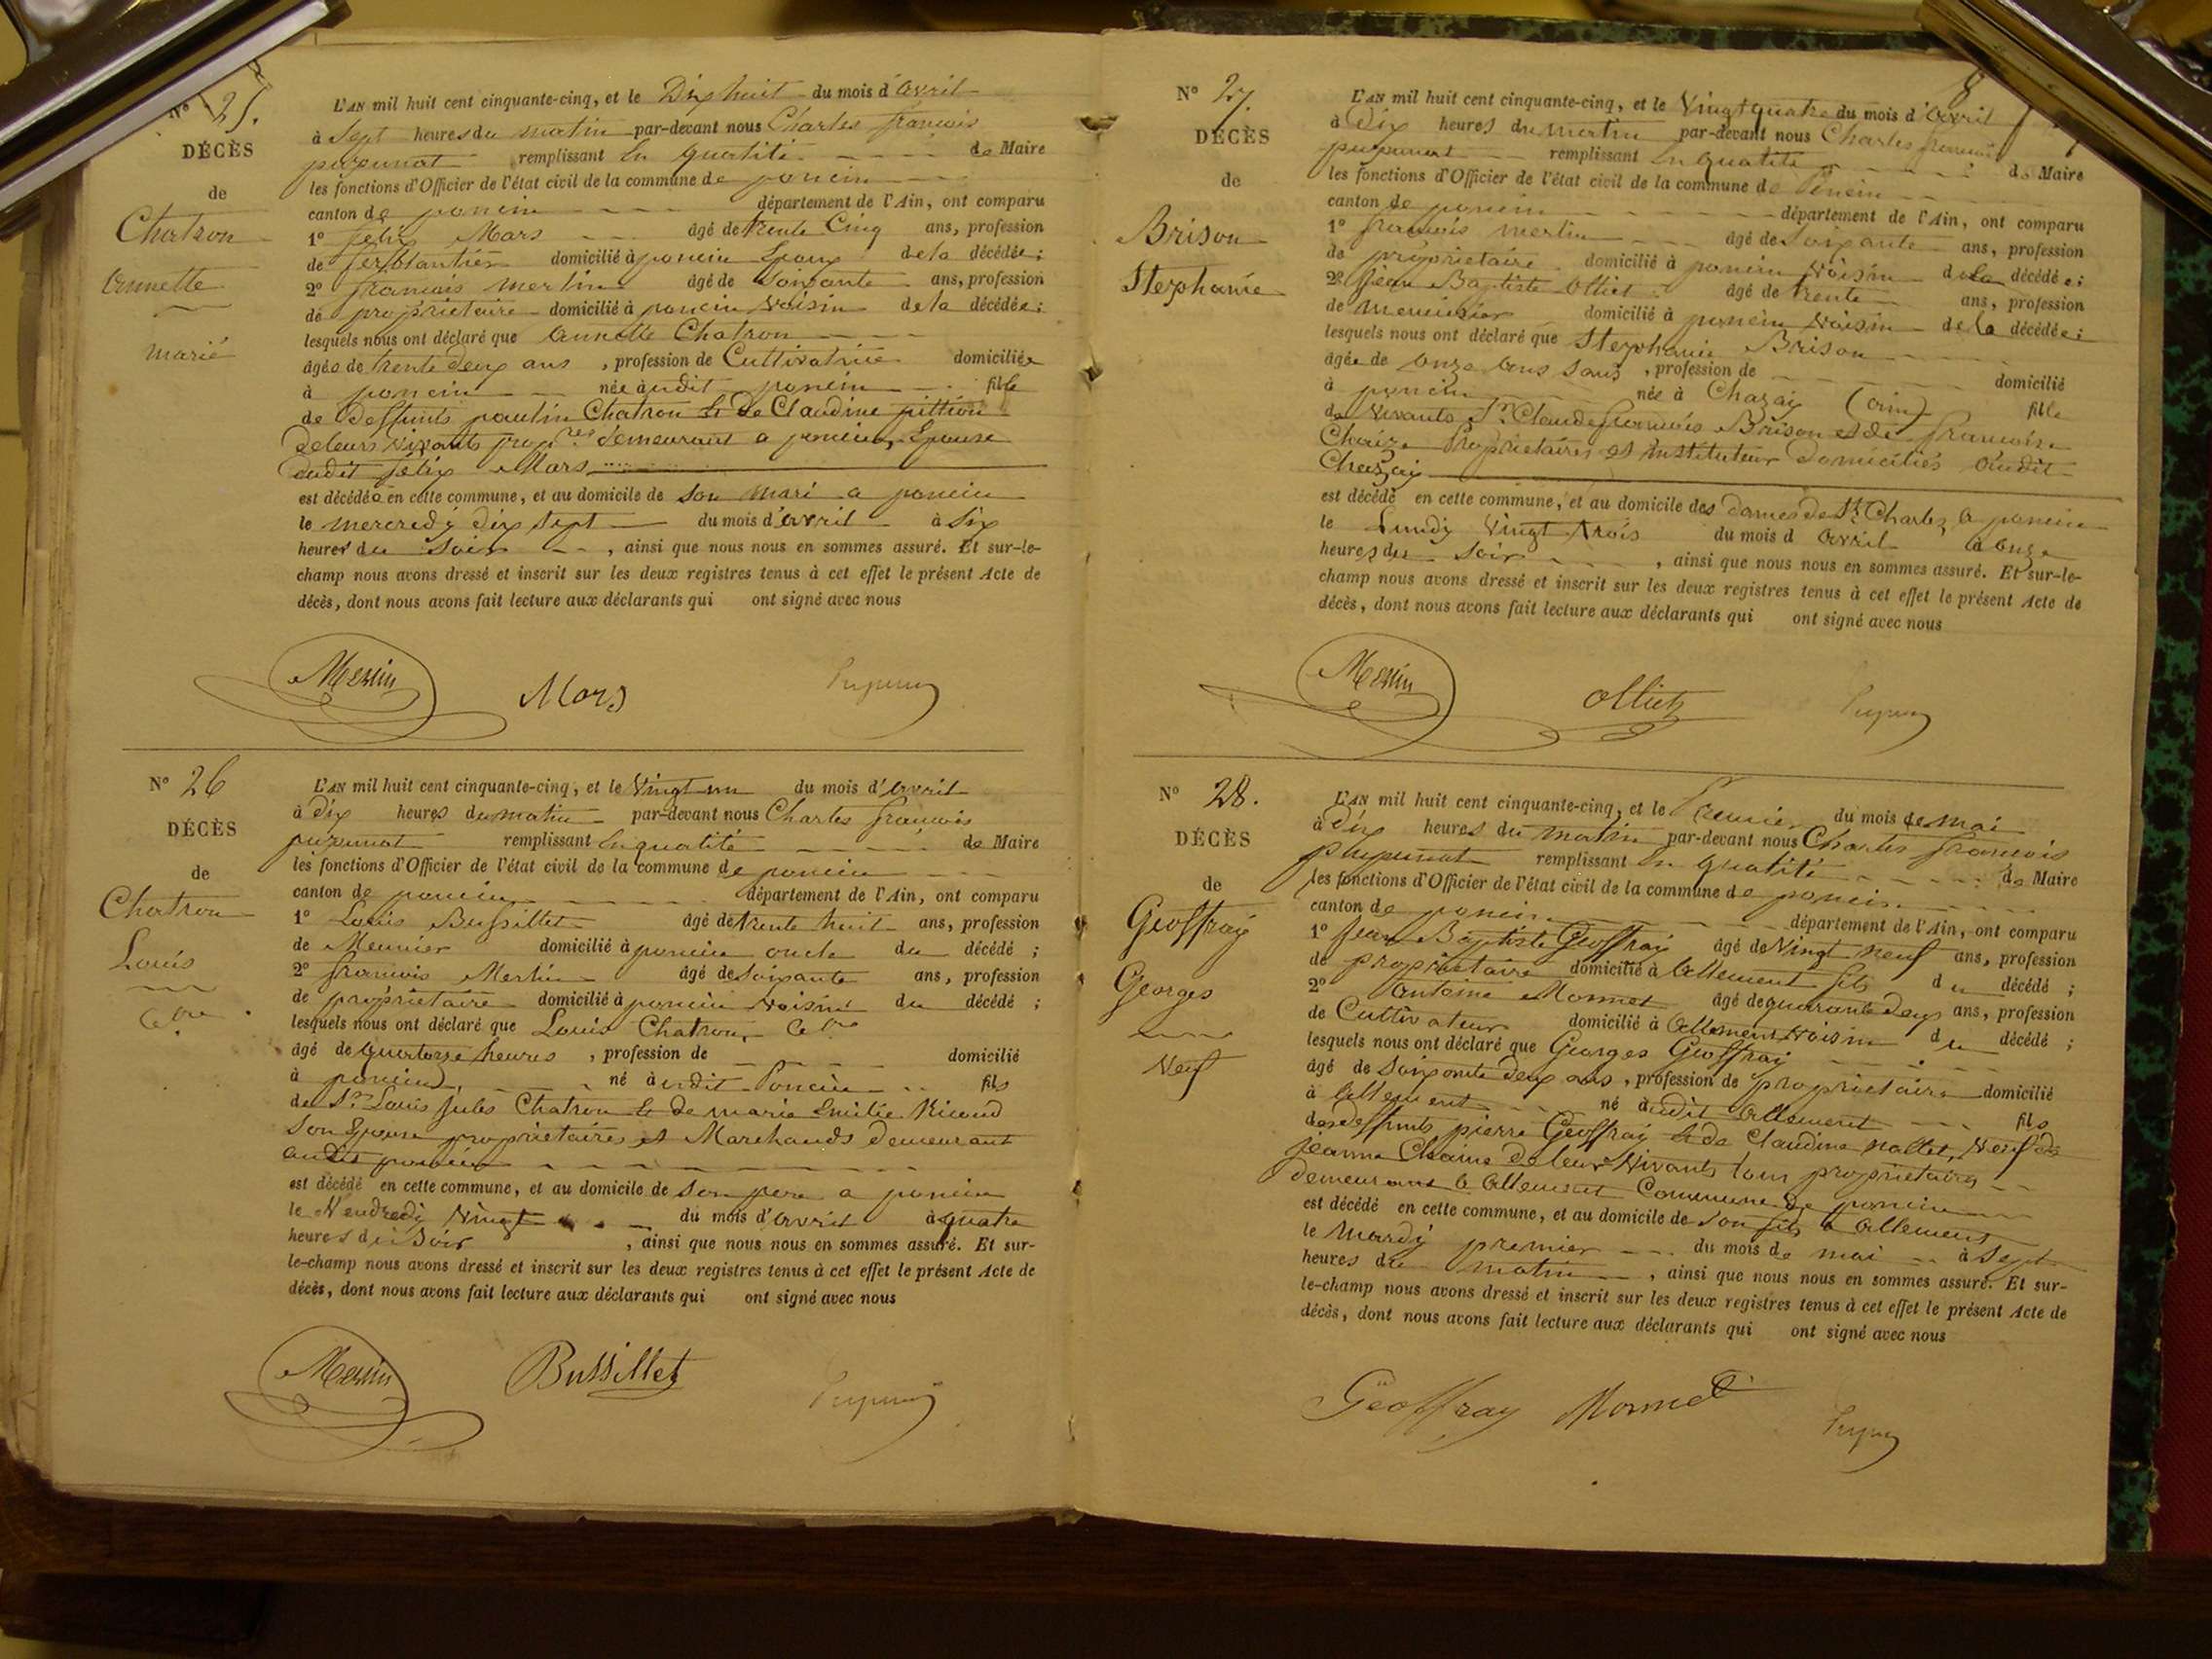 N° 25.
DÉCÈS
de
Chatron
Annette
marié
L'AN mil huit cent cinquante-cinq, et le Dix huit du mois d'avril
à Sept heures du matin par-devant nous Charles françois
remplissant En qualité de Maire
les fonctions d'Officier de l'état civil de la commune de poncin
canton de poncin département de l'Ain, ont comparu
1° felix Mars âgé de trente Cinq ans, profession
de ferblantier domicilié à poncin Epoux de la décédée;
2° françois merlin âgé de Soixante ans, profession
de propriétaire domicilié à poncin Voisin de la décédée;
lesquels nous ont déclaré que Annette Chatron
âgée de trente deux ans, profession de Cultivatrice domiciliée
à poncin née audit poncin fille
de deffunts paulin Chatron & de Claudine pittion
de leurs vivants prop.res demeurant a poncin, Epouse
dudit felix Mars
est décédée en cette commune, et au domicile de son mari a poncin
le mercredy dix sept du mois d'avril à Six
heures du Soir, ainsi que nous nous en sommes assuré. Et sur-le-
champ nous avons dressé et inscrit sur les deux registres tenus à cet effet le présent Acte de
décès, dont nous avons fait lecture aux déclarants qui ont signé avec nous
Merlin Mars
N° 26
DÉCÈS
de
Chatron
Louis
L'AN mil huit cent cinquante-cinq, et le Vingt un du mois d'avril
à dix heures du matin par-devant nous Charles françois
remplissant En qualité de Maire
les fonctions d'Officier de l'état civil de la commune de poncin
canton de poncin département de l'Ain, ont comparu
1° Louis Bussillet âgé de trente huit ans, profession
de Meunier domicilié à poncin oncle du décédé;
2° françois Merlin âgé de soixante ans, profession
de propriétaire domicilié à poncin Voisin du décédé;
lesquels nous ont déclaré que Louis Chatron,
âgé de quatorze heures, profession de domicilié
à poncin, né audit Poncin fils
de Sr Louis Jules Chatron & de marie Emilie
Son Epouse propriétaires et Marchands demeurant
audit poncin
est décédé en cette commune, et au domicile de son pere a poncin
le Vendredy Vingt du mois d'avril à quatre
heures du Soir, ainsi que nous nous en sommes assuré. Et sur-
le-champ nous avons dressé et inscrit sur les deux registres tenus à cet effet le présent Acte de
décès, dont nous avons fait lecture aux déclarants qui ont signé avec nous
Merlin Bussillet
8
N° 27.
DÉCÈS
de
Brison
Stephanie
L'AN mil huit cent cinquante-cinq, et le Vingt quatre du mois d'avril
à Dix heures du matin par-devant nous Charles françois
remplissant En qualité de Maire
les fonctions d'Officier de l'état civil de la commune de Poncin
canton de poncin département de l'Ain, ont comparu
1° françois merlin âgé de Soixante ans, profession
de propriétaire domicilié à poncin Voisin de la décédée;
2° Jean Baptiste Olliet âgé de trente ans, profession
de menuisier domicilié à poncin Voisin de la décédée;
lesquels nous ont déclaré que Stephanie Brison
âgée de onze ans sans, profession de domicilié
à poncin née à Chazay (ain) fille
de vivants Sr Claude françois Brison et de françoise
Chaize Propriétaires et Instituteur domiciliés audit
Chazay
est décédé en cette commune, et au domicile des dames de St Charles, a poncin
le Lundy Vingt trois du mois d avril à onze
heures du Soir, ainsi que nous nous en sommes assuré. Et sur-le-
champ nous avons dressé et inscrit sur les deux registres tenus à cet effet le présent Acte de
décès, dont nous avons fait lecture aux déclarants qui ont signé avec nous
Merlin Olliet
N° 28.
DÉCÈS
de
Geoffray
Georges
Veuf
L'AN mil huit cent cinquante-cinq, et le Premier du mois de mai
à dix heures du matin par-devant nous Charles françois
remplissant En qualité de Maire
les fonctions d'Officier de l'état civil de la commune de poncin
canton de poncin département de l'Ain, ont comparu
1° Jean Baptiste Geoffray âgé de Vingt neuf ans, profession
de propriétaire domicilié à Allement fils du décédé;
2° Antoine Monnet âgé de quarante deux ans, profession
de Cultivateur domicilié à Allement Voisin du décédé;
lesquels nous ont déclaré que Georges Geoffray
âgé de Soixante deux ans, profession de propriétaire domicilié
à Allement né audit Allement fils
des deffunts pierre Geoffray & de Claudine nallet, Veuf de
jeanne Chaine de leur Vivants tous propriétaires
demeurant a Allement Commune de poncin
est décédé en cette commune, et au domicile de son fils a Allement
le Mardy premier du mois de mai à Sept
heures du matin, ainsi que nous nous en sommes assuré. Et sur-
le-champ nous avons dressé et inscrit sur les deux registres tenus à cet effet le présent Acte de
décès, dont nous avons fait lecture aux déclarants qui ont signé avec nous
Geoffray Monnet